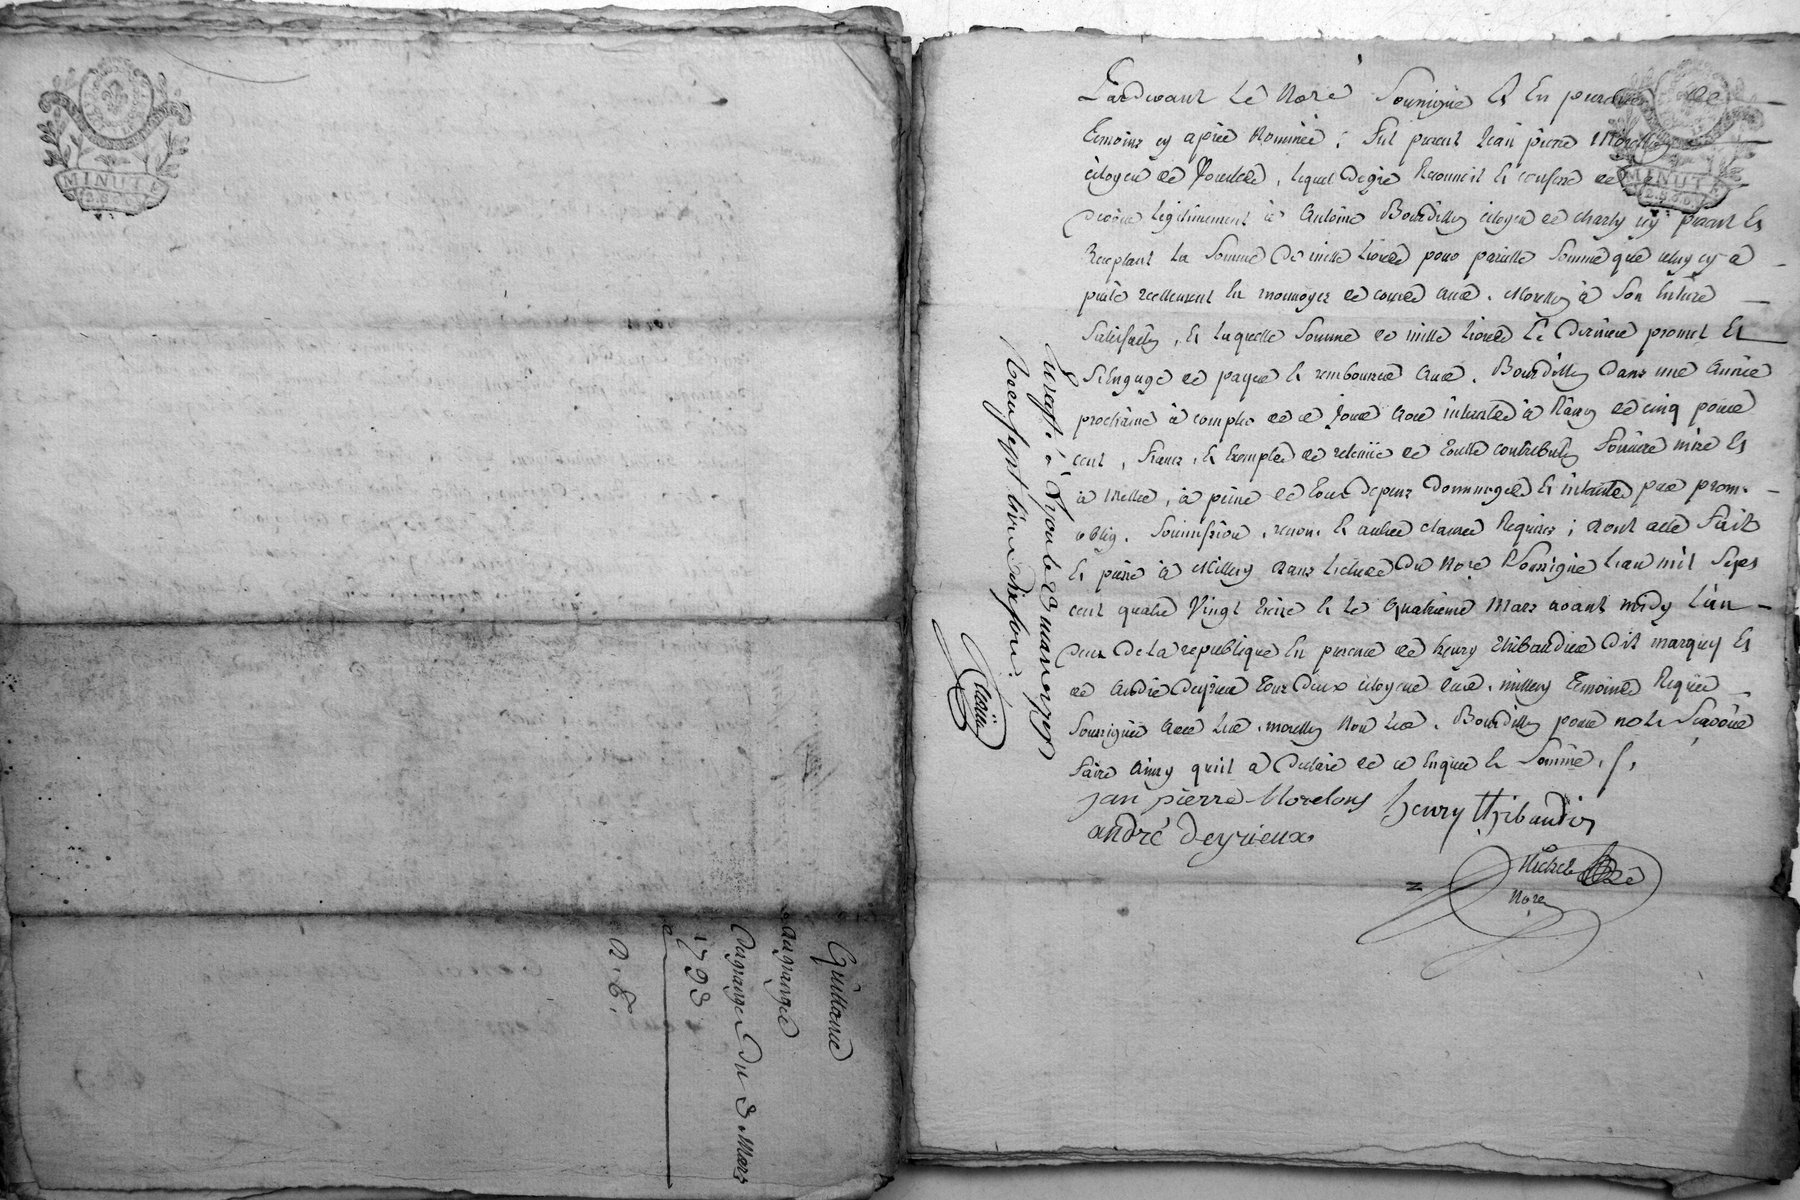 MINUTE
2.S.6.D.
Quittance
augranger
Dugranger Du 3 Mars
1793
R. E.
Pardevant Le Nore Soussigné Et En presence des
Temoins cy après Nommés ; fut present Jean pierre Morellon
citoyen de , lequel De gré Reconnoit Et confesse de
devoir légitimement à Antoine Bourdillon citoyen de charly icy present Et
acceptant La Somme De mille Livres pour pareille Somme que celuy cy a
preté reellement En monnoyes de cours aud. Morellon à Son Entiere
Satisfacton, Et laquelle Somme de mille livres Ce Dernier promet Et
S'Engage de payer Et rembourser aud. Bourdillon dans une Année
prochaine à compter de ce Jour avec intérets à Raison de cinq pour
cent, francs, Et Exempts de retenüe de toutte contribution fonciere mise Et
à Mettre, à peine de tous depens Dommages Et intérets par prom.
oblig. Soumission, renon. Et autres clauses Requises ; dont acte fait
Et passé à Millery dans l'étude Du Nore Soussigné L'an mil Sept
cent quatre Vingt treize Et Le Quatrieme Mars avant midy L'an
deux De La republique En presence de henry thibaudier dit marquis Et
de André Deyrieux tous Deux citoyens dud. millery temoins Requis
Soussignés avec Led. morellon Non Led. Bourdillon pour ne le Scavoir
faire ainsy qu'il a Declaré de ce Enquis Et Sommé.
jan pierre Morelons henry thibaudier
andré deyrieux
Nore
Enregtré à Lyon le 8 mars 1793
Reçu sept livres dix sous